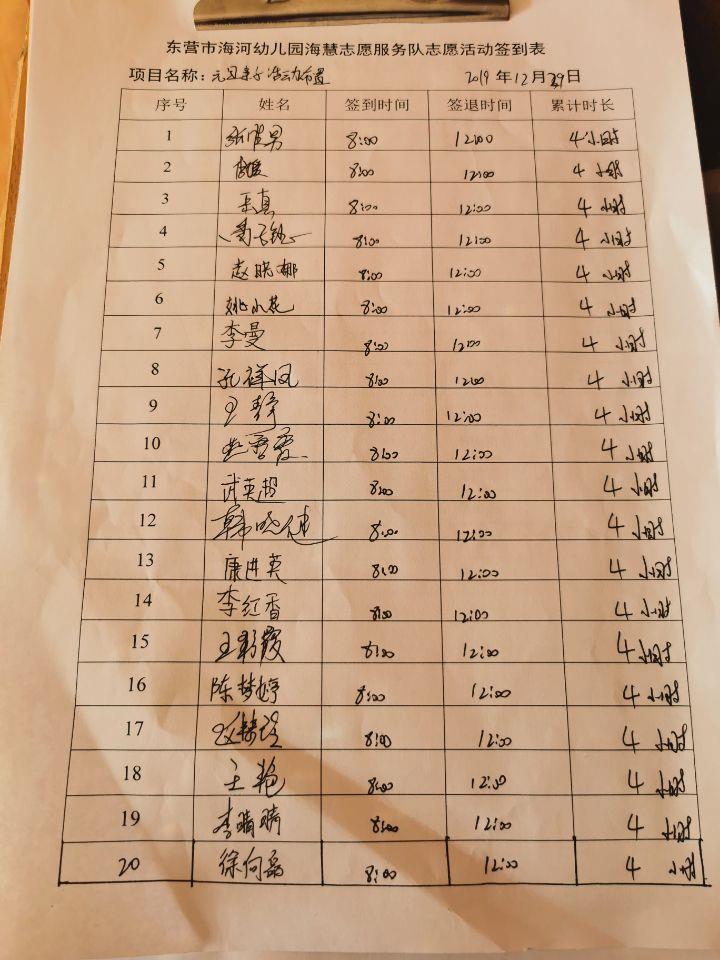 东营市海河幼儿园海慧志愿服务队志愿活动签到表
项目名称：元旦亲子活动布置 2019年12月29日
序号 姓名 签到时间 签退时间 累计时长
1 8:00 12:00 4小时
2 8:00 12:00 4 小时
3 王真 8:00 12:00 4 小时
4 8:00 12:00 4 小时
5 赵晓娜 8:00 12:00 4 小时
6 姚小花 8:00 12:00 4 小时
7 李曼 8:00 12:00 4 小时
8 孔祥凤 8:00 12:00 4 小时
9 王静 8:00 12:00 4 小时
10 8:00 12:00 4 小时
11 武英超 8:00 12:00 4 小时
12 韩晓健 8:00 12:00 4 小时
13 康进英 8:00 12:00 4 小时
14 李红香 8:00 12:00 4 小时
15 王彩霞 8:00 12:00 4 小时
16 陈梦婷 8:00 12:00 4 小时
17 8:00 12:00 4 小时
18 王艳 8:00 12:00 4 小时
19 李晴晴 8:00 12:00 4 小时
20 徐向磊 8:00 12:00 4 小时